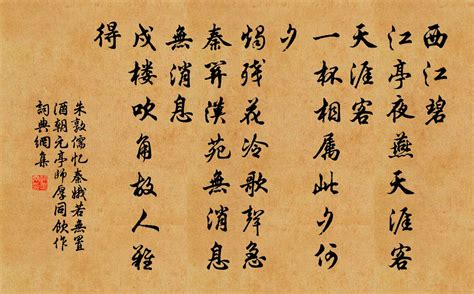 西江碧
江亭夜燕天涯客
天涯客
一杯相属此夕何
夕
燭残花冷歌聲急
秦関漢苑無消息
無消息
戍楼吹角故人難
得
朱敦儒忆秦娥若無置
酒朝元亭師厚同飲作
詞典網集